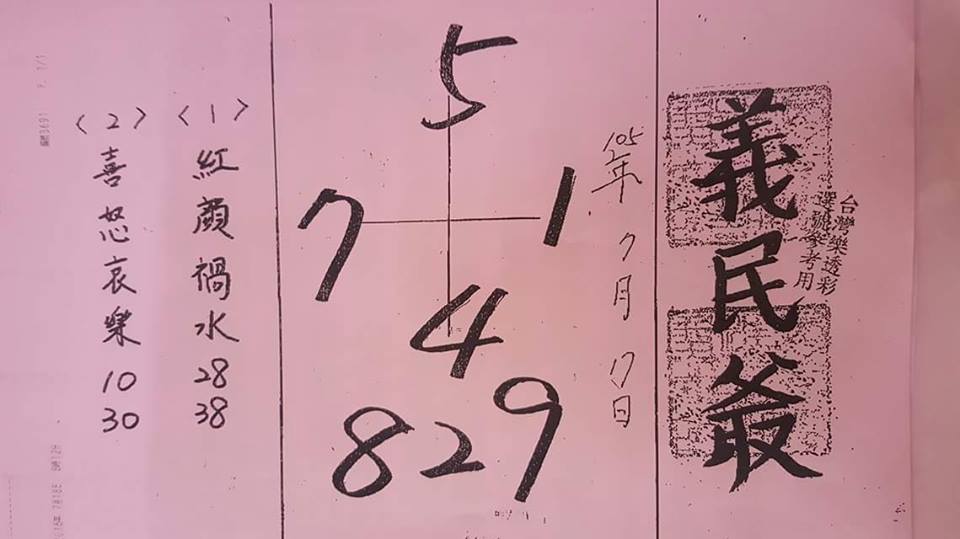 義民爺
台灣樂透彩
選號參考用
105年7月17日
5
7 1
4
8 2 9
〈1〉紅顏禍水 28 38
〈2〉喜怒哀樂 10 30